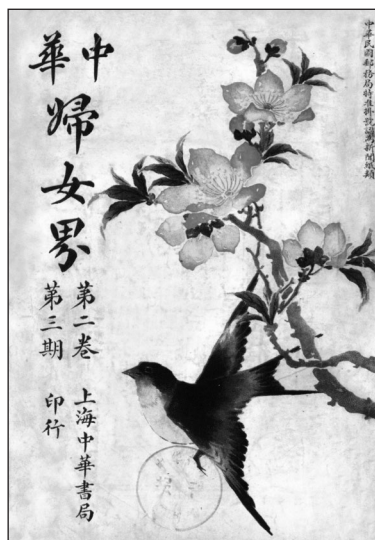 中華民國郵務局特准掛號認為新聞紙類
中華
婦女界
第二卷
第三期
上海中華書局
印行